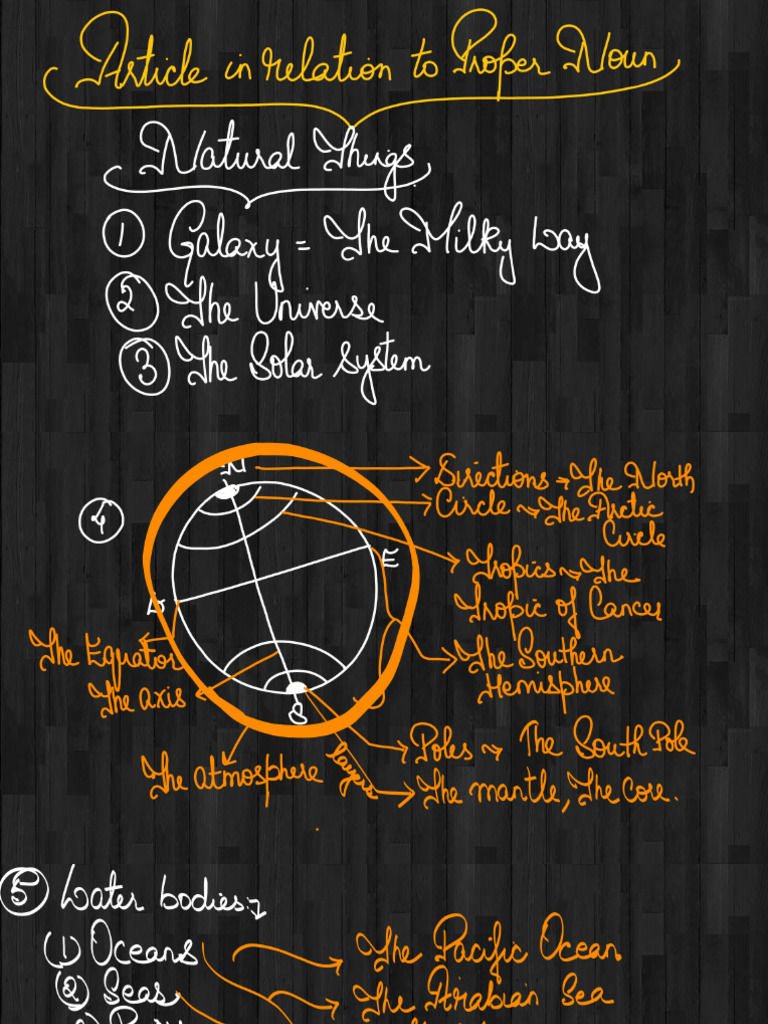 Article in relation to Proper Noun
Natural Things
① Galaxy = The Milky Way
② The Universe
③ The Solar System
④
N
E
S
Directions → The North
Circle → The Arctic
Circle
Tropics → The
Tropic of Cancer
The Southern
Hemisphere
The Equator
The axis
The atmosphere
layers
Poles → The South Pole
The mantle, The Core.
⑤ Water bodies:→
(1) Oceans
The Pacific Ocean
(2) Seas
The Arabian Sea